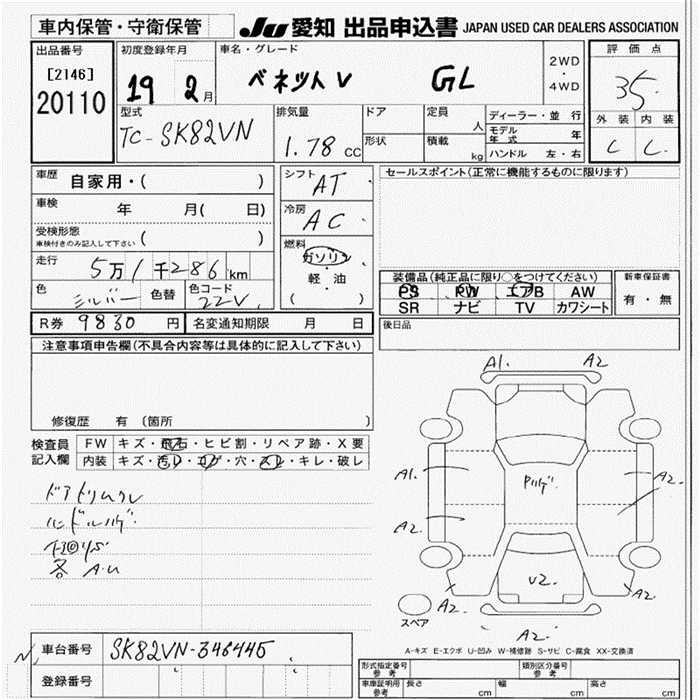 車内保管・守衛保管
JU 愛知 出品申込書 JAPAN USED CAR DEALERS ASSOCIATION
出品番号
[2146]
20110
初度登録年月
19 2月
車名・グレード
ベネット V GL
2WD
・
4WD
評価点
35
外装 内装
C C
型式
TC-SK82VN
排気量
1.78 cc
ドア
形状
定員
人
積載
kg
ディーラー・並行
モデル年式 年
ハンドル 左・右
車歴 自家用・( )
車検 年 月( 日)
受検形態
車検付きのみ記入して下さい ( )
走行 5万1千286km
色 シルバー 色替 色コード 22V
シフト AT
冷房 AC
燃料
ガソリン
軽・油
( )
セールスポイント(正常に機能するものに限ります)
装備品(純正品に限り○をつけてください)
PS PW エアB AW
SR ナビ TV カワシート
新車保証書
有・無
R券 9830 円 名変通知期限 月 日
後日品
注意事項申告欄(不具合内容等は具体的に記入して下さい)
修復歴 有 〔箇所 〕
検査員記入欄
FW キズ・飛石・ヒビ割・リペア跡・X要
内装 キズ・汚レ・コゲ・穴・スレ・キレ・破レ
各 A.U
A1. A2
A1. A2.
A2. Pハゲ
V2.
A2. A2.
A2.
スペア
A-キズ E-エクボ U-凹み W-補修跡 S-サビ C-腐食 XX-交換済
車台番号 SK82VN-346445
登録番号
型式指定番号 参考
類別区分番号 参考
車庫証明用 参考 長さ cm 幅 cm 高さ cm